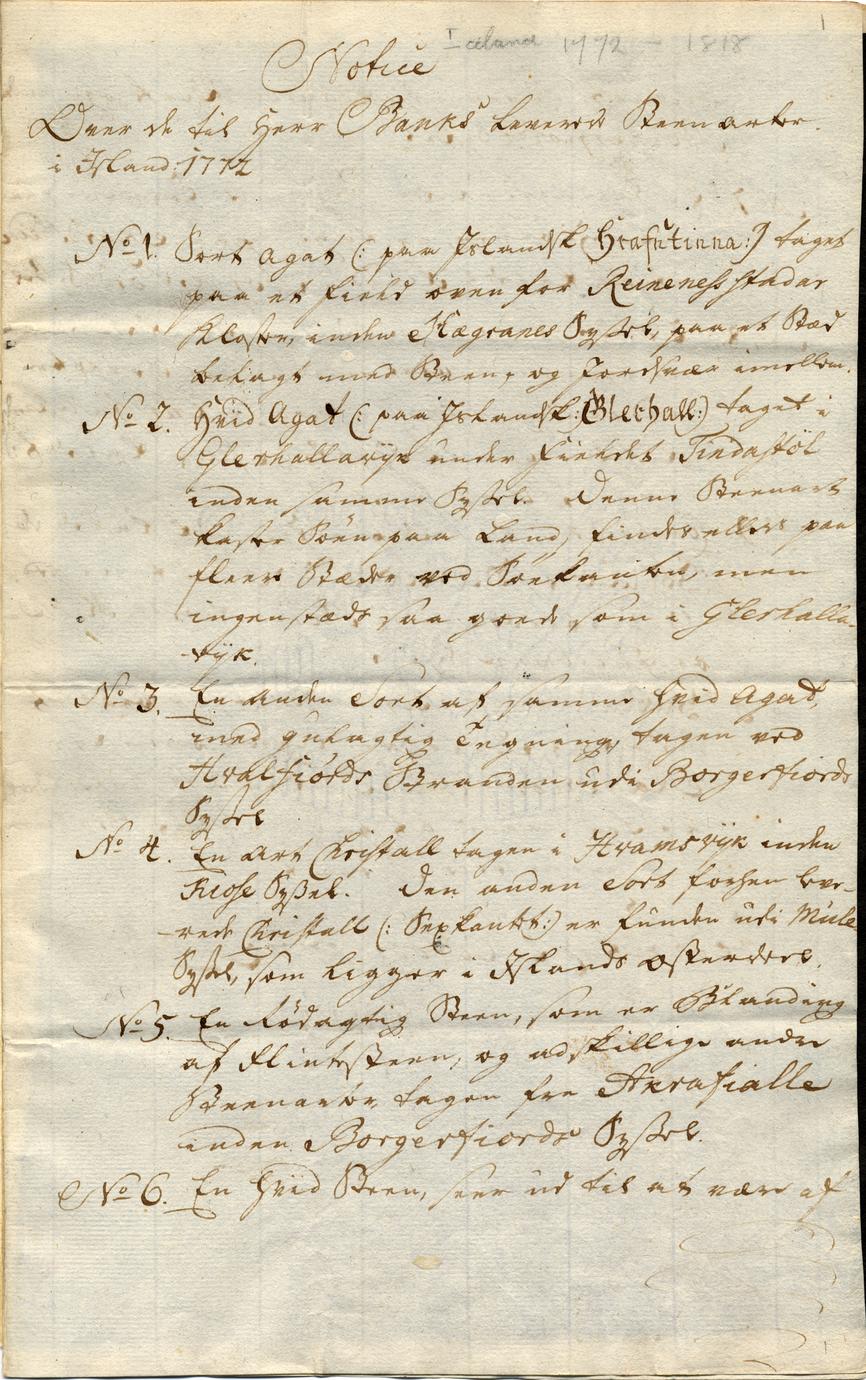 1
Iceland 1772 - 1818
Notice
Over de til Herr Banks leverede Steenarter.
i Island: 1772
No 1. Sort Agat (: paa Islandsk Hrafntinna:) taget
paa et Field oven for Reinenesstadar
Kloster, inden Hegranes Syssel, paa et Stæd
belagt med Steen, og Jordsvær imellem.
No 2. Hvid Agat (: paa Islandsk: Glerhall:) taget i
Glerhallavijk under Fieldet Tindastöl
inden samme Syssel. Denne Steenart
kaster Söen paa Land, findes ellers paa
fleere Stæder ved Söekanten, men
ingenstæds saa goede som i Glerhalla-
vijk.
No 3. En anden Sort af samme hvid Agat,
med gulagtig Tegning, tagen ved
Hvalfiords Stranden udi Borgerfiords
Syssel
No 4. En Art Christall tagen i Hvamsvijk inden
Kiose Syssel. Den anden Sort forhen leve-
rede Christall (: Sexkantet:) er funden udi Mule
Syssel, som ligger i Islands Østerdeel.
No 5. En Rödagtig Steen, som er Blanding
af Flintesteen, og adskillige andre
Steenarter, tagen fra Akrafialle
inden Borgerfiords Syssel.
No 6. En hvid Steen, seer ud til at være af